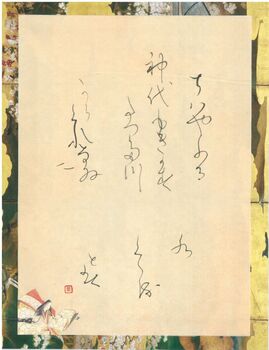 ちはやふる
神代もきかす
たつ多川
から
くれなゐ二
水
くゝる
とは